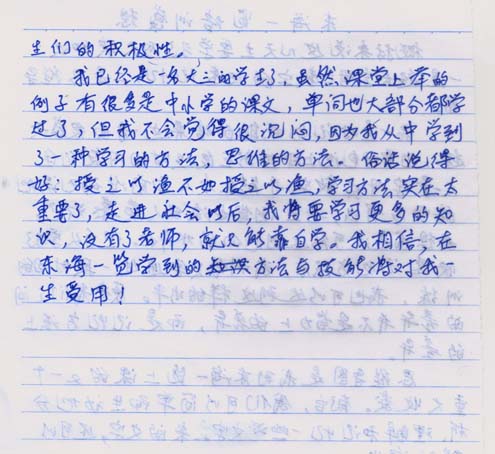 生们的积极性。
我已经是一名大三的学生了，虽然课堂上举的
例子有很多是中小学的课文，单词也大部分都学
过了，但我不会觉得很沉闷，因为我从中学到
了一种学习的方法，思维的方法。俗话说得
好：授之以渔不如授之以渔，学习方法实在太
重要了，走进社会以后，我将要学习更多的知
识，没有了老师，就只能靠自学。我相信，在
东海一览学到的方法与技能将对我一
生受用！